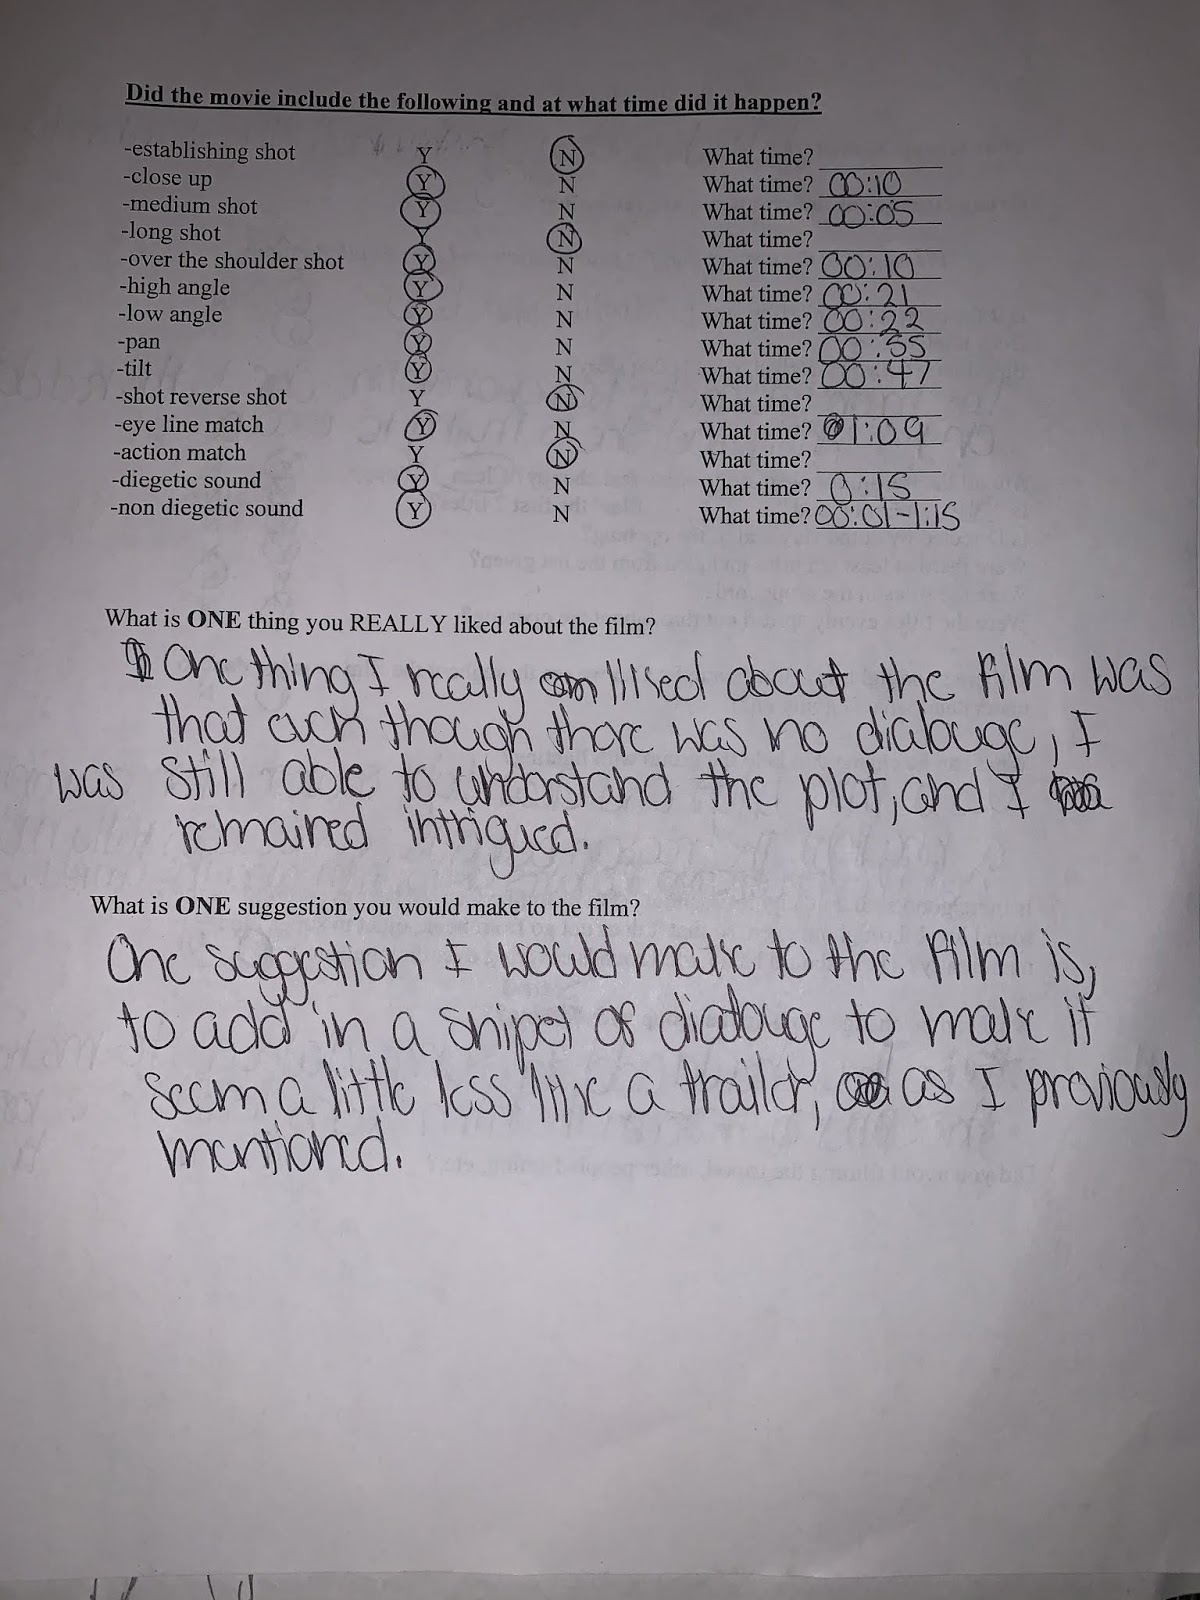 Did the movie include the following and at what time did it happen?
-establishing shot Y N What time?
-close up Y N What time? 00:10
-medium shot Y N What time? 00:05
-long shot Y N What time?
-over the shoulder shot Y N What time? 00:10
-high angle Y N What time? 00:21
-low angle Y N What time? 00:22
-pan Y N What time? 00:55
-tilt Y N What time? 00:47
-shot reverse shot Y N What time?
-eye line match Y N What time? 01:09
-action match Y N What time?
-diegetic sound Y N What time? 0:15
-non diegetic sound Y N What time? 00:01-1:15
What is ONE thing you REALLY liked about the film?
One thing I really liked about the film was
that even though there was no dialouge, I
was still able to understand the plot, and I
remained intrigued.
What is ONE suggestion you would make to the film?
One suggestion I would make to the film is,
to add in a snipet of dialouge to make it
seem a little less like a trailer, as I previously
mentioned.